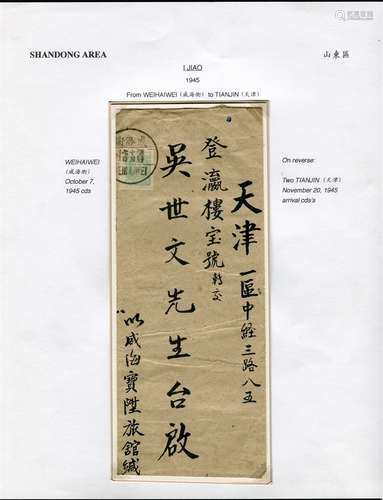 SHANDONG AREA
山東區
I JIAO
1945
From WEIHAIWEI (威海衛) to TIANJIN (天津)
WEIHAIWEI
(威海衛)
October 7,
1945 cds
On reverse:
Two TIANJIN (天津)
November 20, 1945
arrival cds's
天津一區中經三路八五
登瀛樓宝號轉交
吳世文先生台啟
以威海寶陞旅館緘